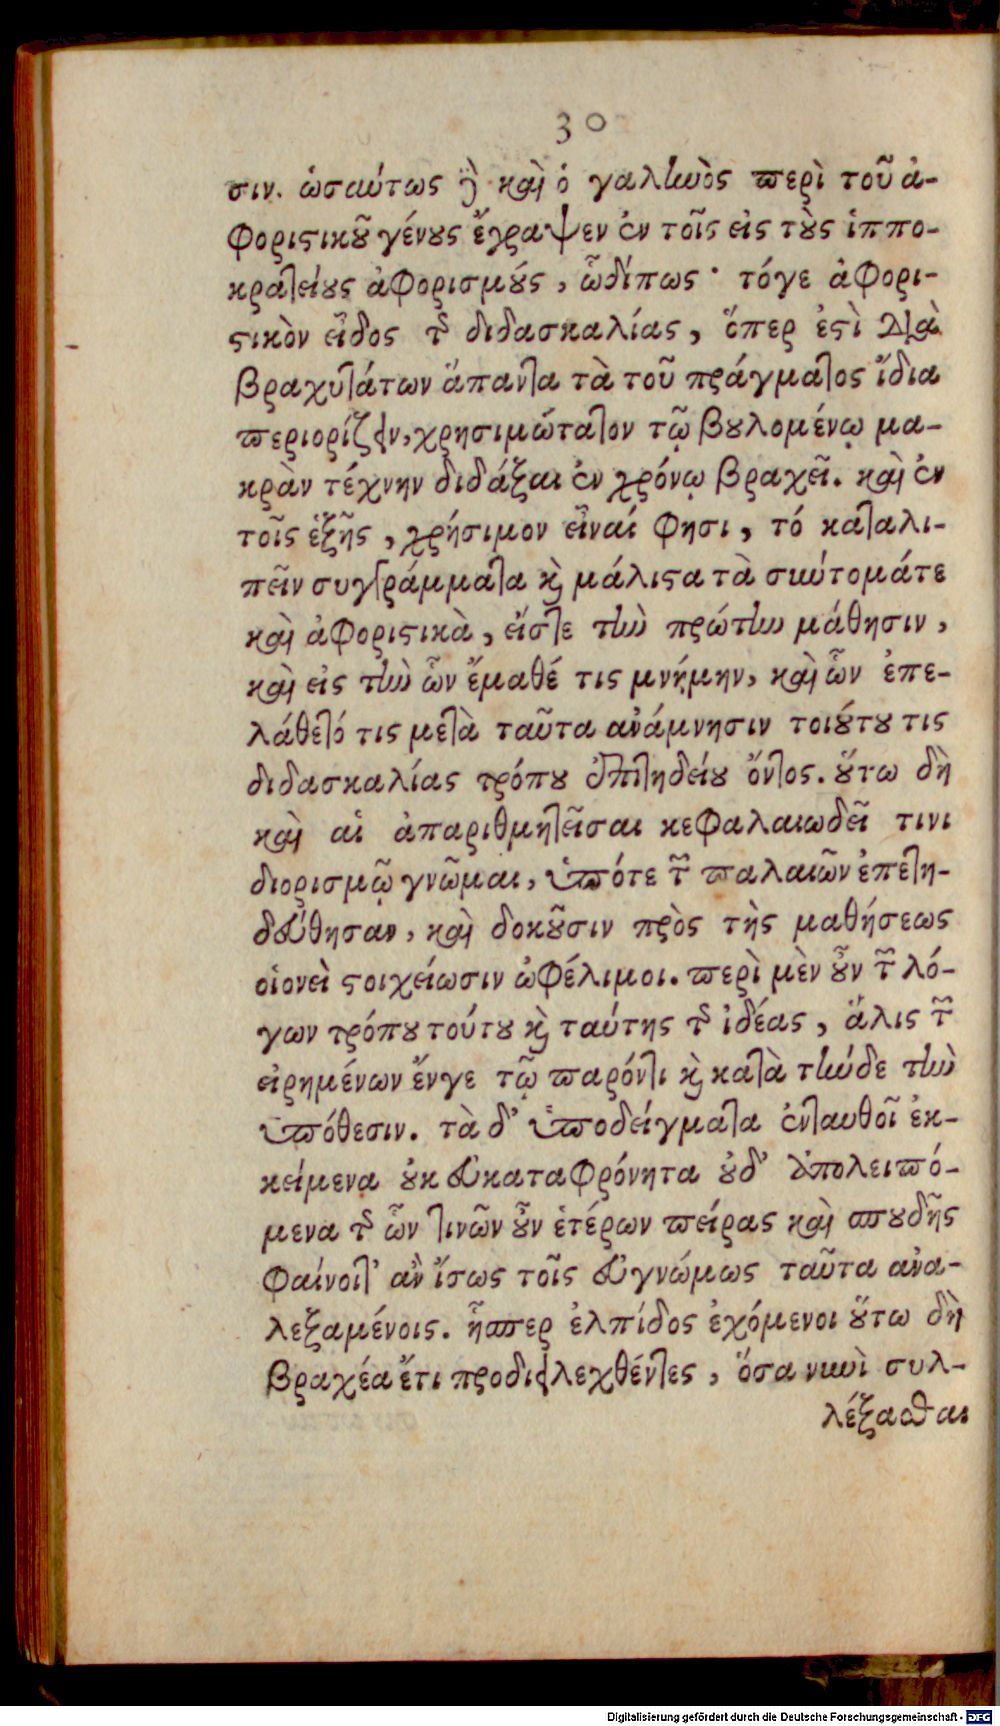 30
σιν. ὡσαύτως δὲ καὶ ὁ γαληνὸς περὶ τοῦ ἀ-
φοριστικοῦ γένους ἔγραψεν ἐν τοῖς εἰς τοὺς ἱππο-
κρατείους ἀφορισμούς, ὧδίπως· τόγε ἀφορι-
στικὸν εἶδος τῆς διδασκαλίας, ὅπερ ἐστὶ διὰ
βραχυτάτων ἅπαντα τὰ τοῦ πράγματος ἴδια
περιορίζειν, χρησιμώτατον τῷ βουλομένῳ μα-
κρὰν τέχνην διδάξαι ἐν χρόνῳ βραχεῖ. καὶ ἐν
τοῖς ἑξῆς, χρήσιμον εἶναί φησι, τό καταλι-
πεῖν συγγράμματα καὶ μάλιστα τὰ σωύτομάτε
καὶ ἀφοριστικὰ, εἴστε τὴν πρώτην μάθησιν,
καὶ εἰς τὴν ὧν ἔμαθέ τις μνήμην, καὶ ὧν ἐπε-
λάθετό τις μετὰ ταῦτα ἀνάμνησιν τοιούτου τις
διδασκαλίας τρόπου ἐπιτηδείου ὄντος. οὕτω δὴ
καὶ αἱ ἀπαριθμητεῖσαι κεφαλαιωδεῖ τινι
διορισμῷ γνῶμαι, ὑπότε τῶν παλαιῶν ἐπετη-
δεύθησαν, καὶ δοκοῦσιν πρὸς τὴς μαθήσεως
οἱονεὶ στοιχείωσιν ὠφέλιμοι. περὶ μὲν οὖν τῶν λό-
γων τρόπου τούτου καὶ ταύτης τῆς ἰδέας, ἅλις τῶν
εἰρημένων ἔνγε τῷ παρόντι καὶ κατὰ τήνδε τὴν
ὑπόθεσιν. τὰ δ’ ὑποδείγματα ἐνταυθοῖ ἐκ-
κείμενα οὐκ εὐκαταφρόνητα οὐδ’ ἀπολειπό-
μενα τῆς ὧν τινῶν οὖν ἑτέρων πείρας καὶ σπουδῆς
φαίνοιτ’ ἀν ἴσως τοῖς εὐγνώμως ταῦτα ἀνα-
λεξαμένοις. ἧσπερ ἐλπίδος ἐχόμενοι οὕτω δὴ
βραχέα ἔτι προδιειλεχθέντες, ὅσα νυνὶ συλ-
λέξασθαι
Digitalisierung gefördert durch die Deutsche Forschungsgemeinschaft - DFG